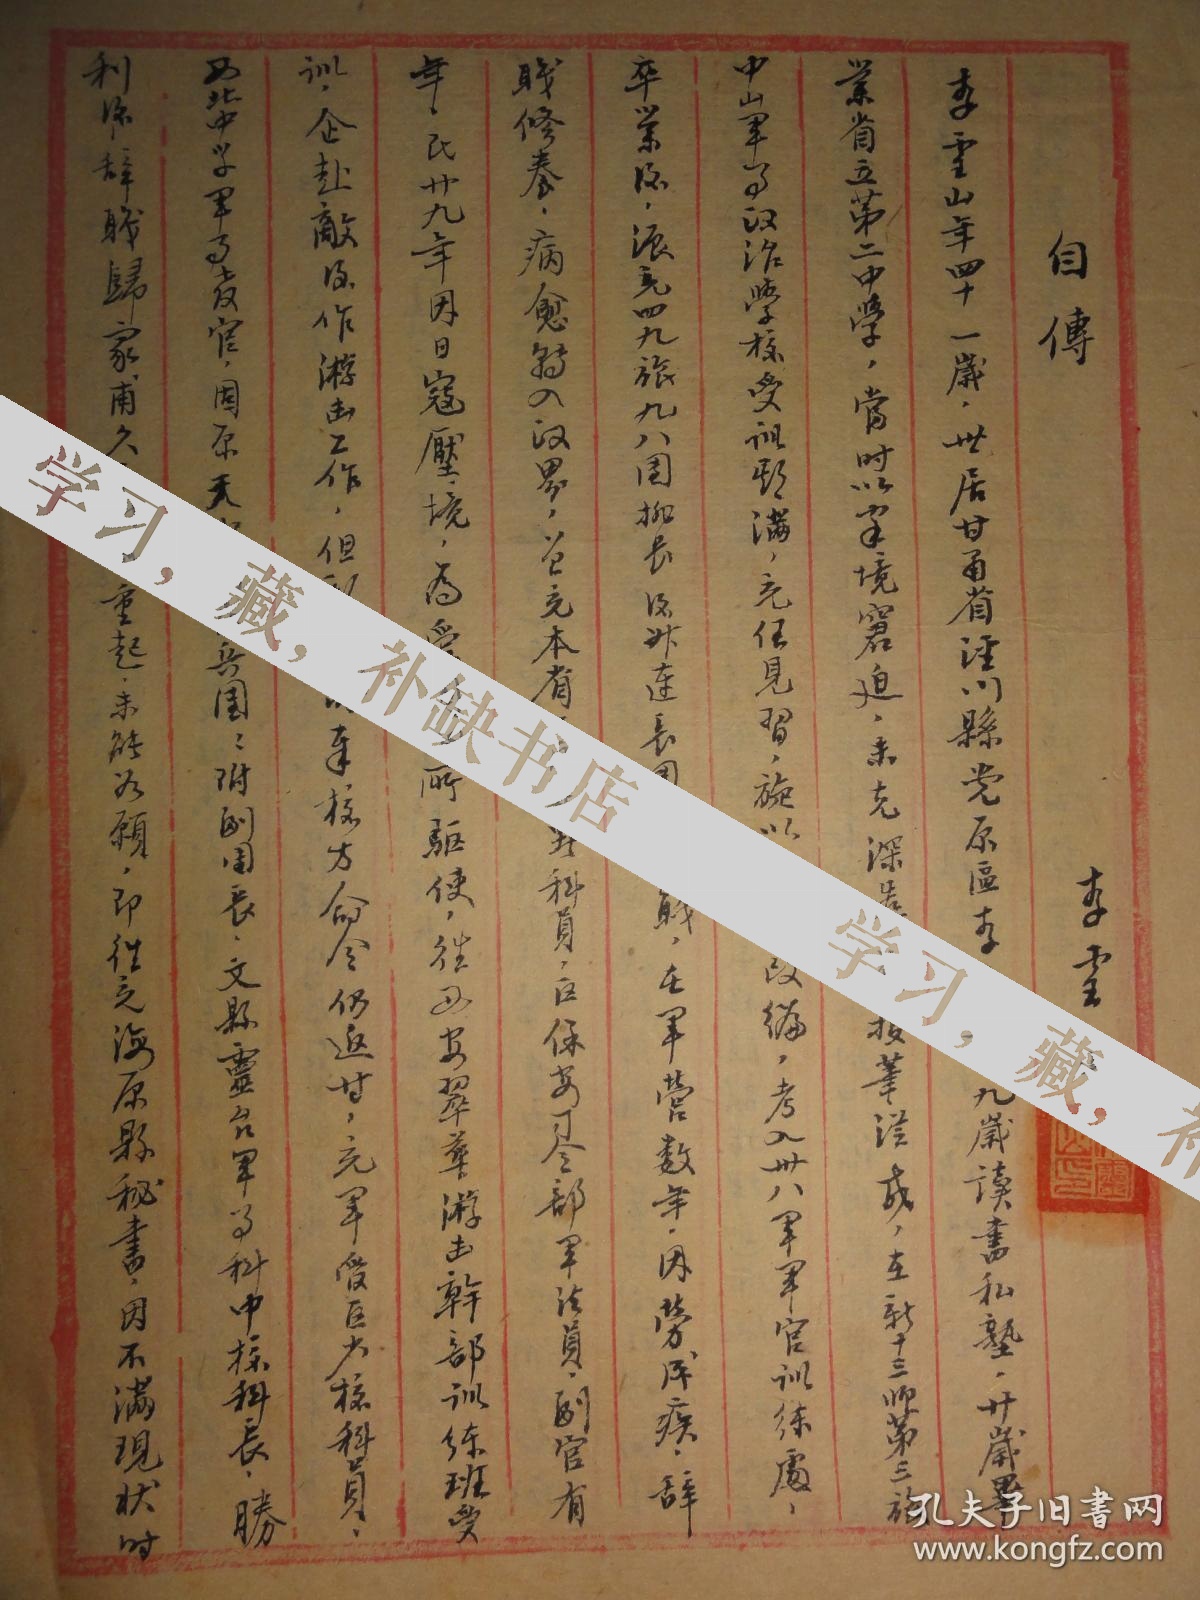 自傳
李雲
李雲山年四十一歲，世居甘肅省涇川縣党原區李 九歲讀書私塾，廿歲畢
業省立第二中學，當時以家境窘迫，未克深 投筆從戎，在新十三師第三旅
中山軍事政治學校受訓期滿，充任見習，旋以 改編，考入卅八軍軍官訓练處，
卒業後，派充四九旅九八團排長後升連長 職，在軍營数年，因勞成疾，辞
職修養，病愈轉入政界，曾充本省 科員，區保安司令部軍法員，副官有
年，民廿九年因日寇壓境，為 所驅使，往西安翠華游击幹部训练班受
训，企赴敵後作游击工作，但 奉校方命令仍返甘，充軍管區大校科員，
西北中学軍事教官，固原 兵團附副團長，文縣靈台軍事科中校科長，勝
利後，辞職歸家， 重起，未能如願，即往充海原縣秘書，因不滿現状时
学习，藏，补缺书店
学习，藏，补
孔夫子旧书网
www.kongfz.com